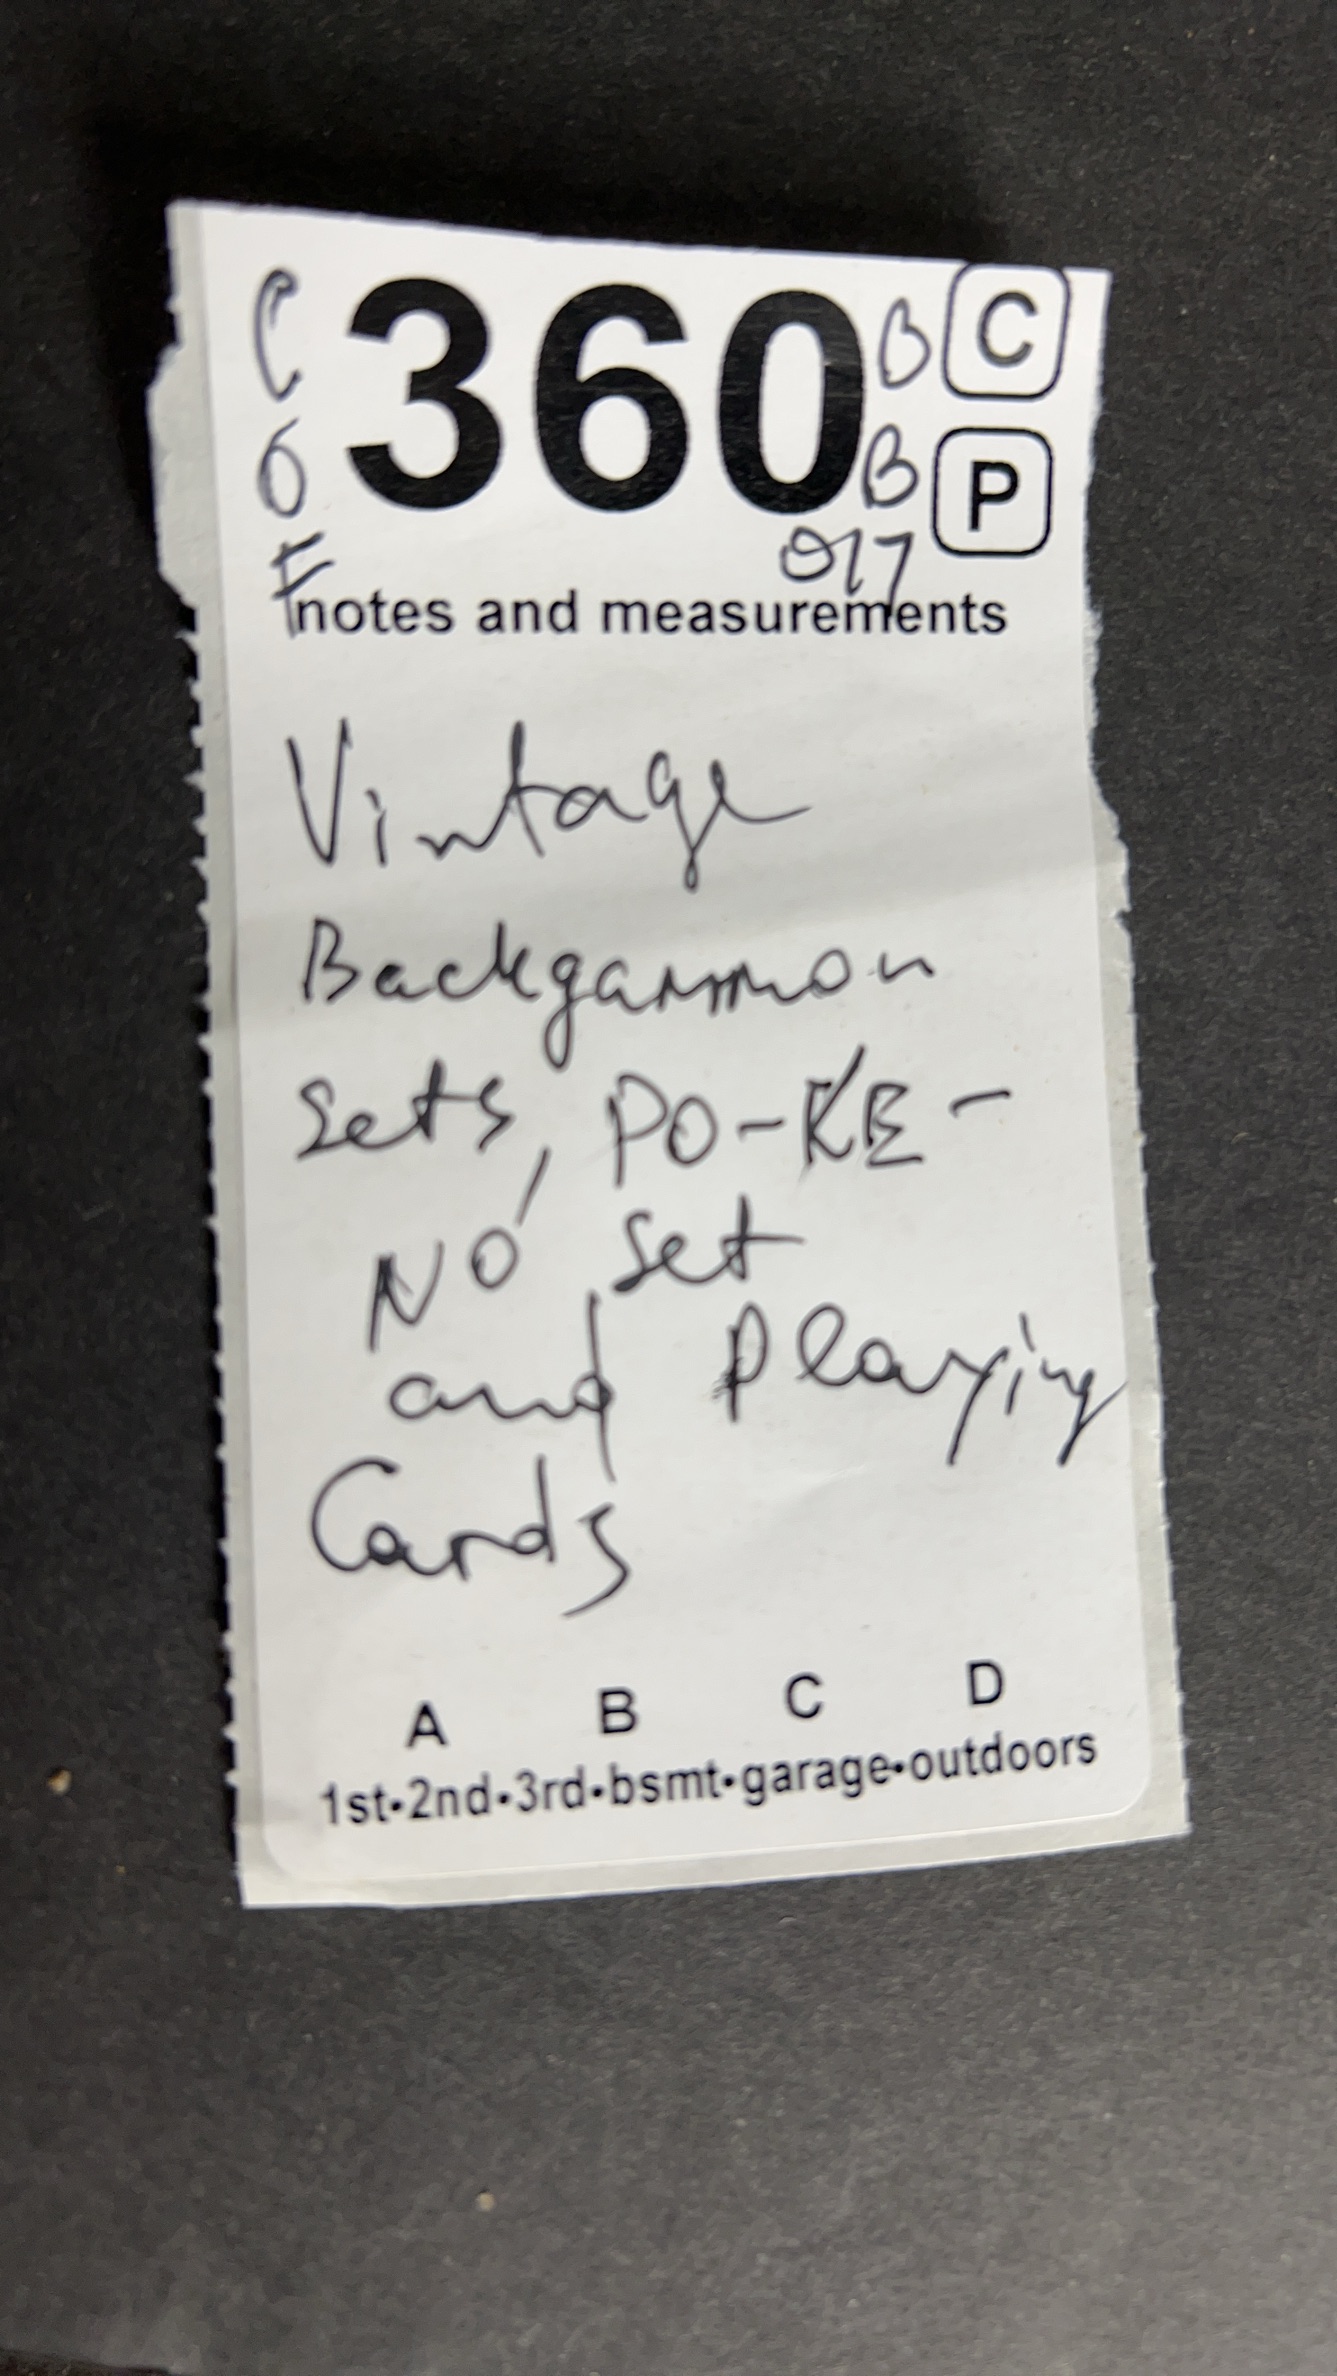 C 360 B C
O B P
F 017
notes and measurements
Vintage
Backgammon
Sets, PO-KE-
NO, set
and Playing
Cards
A B C D
1st•2nd•3rd•bsmt•garage•outdoors